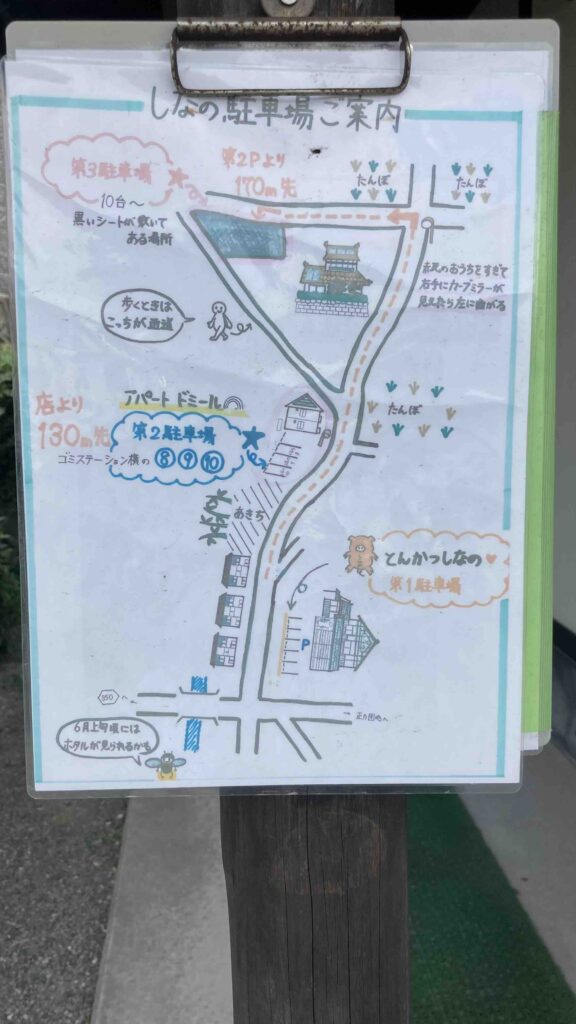 しなの駐車場ご案内
第3駐車場
10台〜
黒いシートが敷いて
ある場所
第2Pより
170m先
たんぼ
たんぼ
右手にカーブミラーが
見えたら左に曲がる
歩くときは
こっちが近道
たんぼ
アパート ドミール
店より
130m先
第2駐車場
ゴミステーション横の⑧⑨⑩
あきち
とんかつしなの♥
第1駐車場
P
6月上旬頃には
ホタルが見られるかも